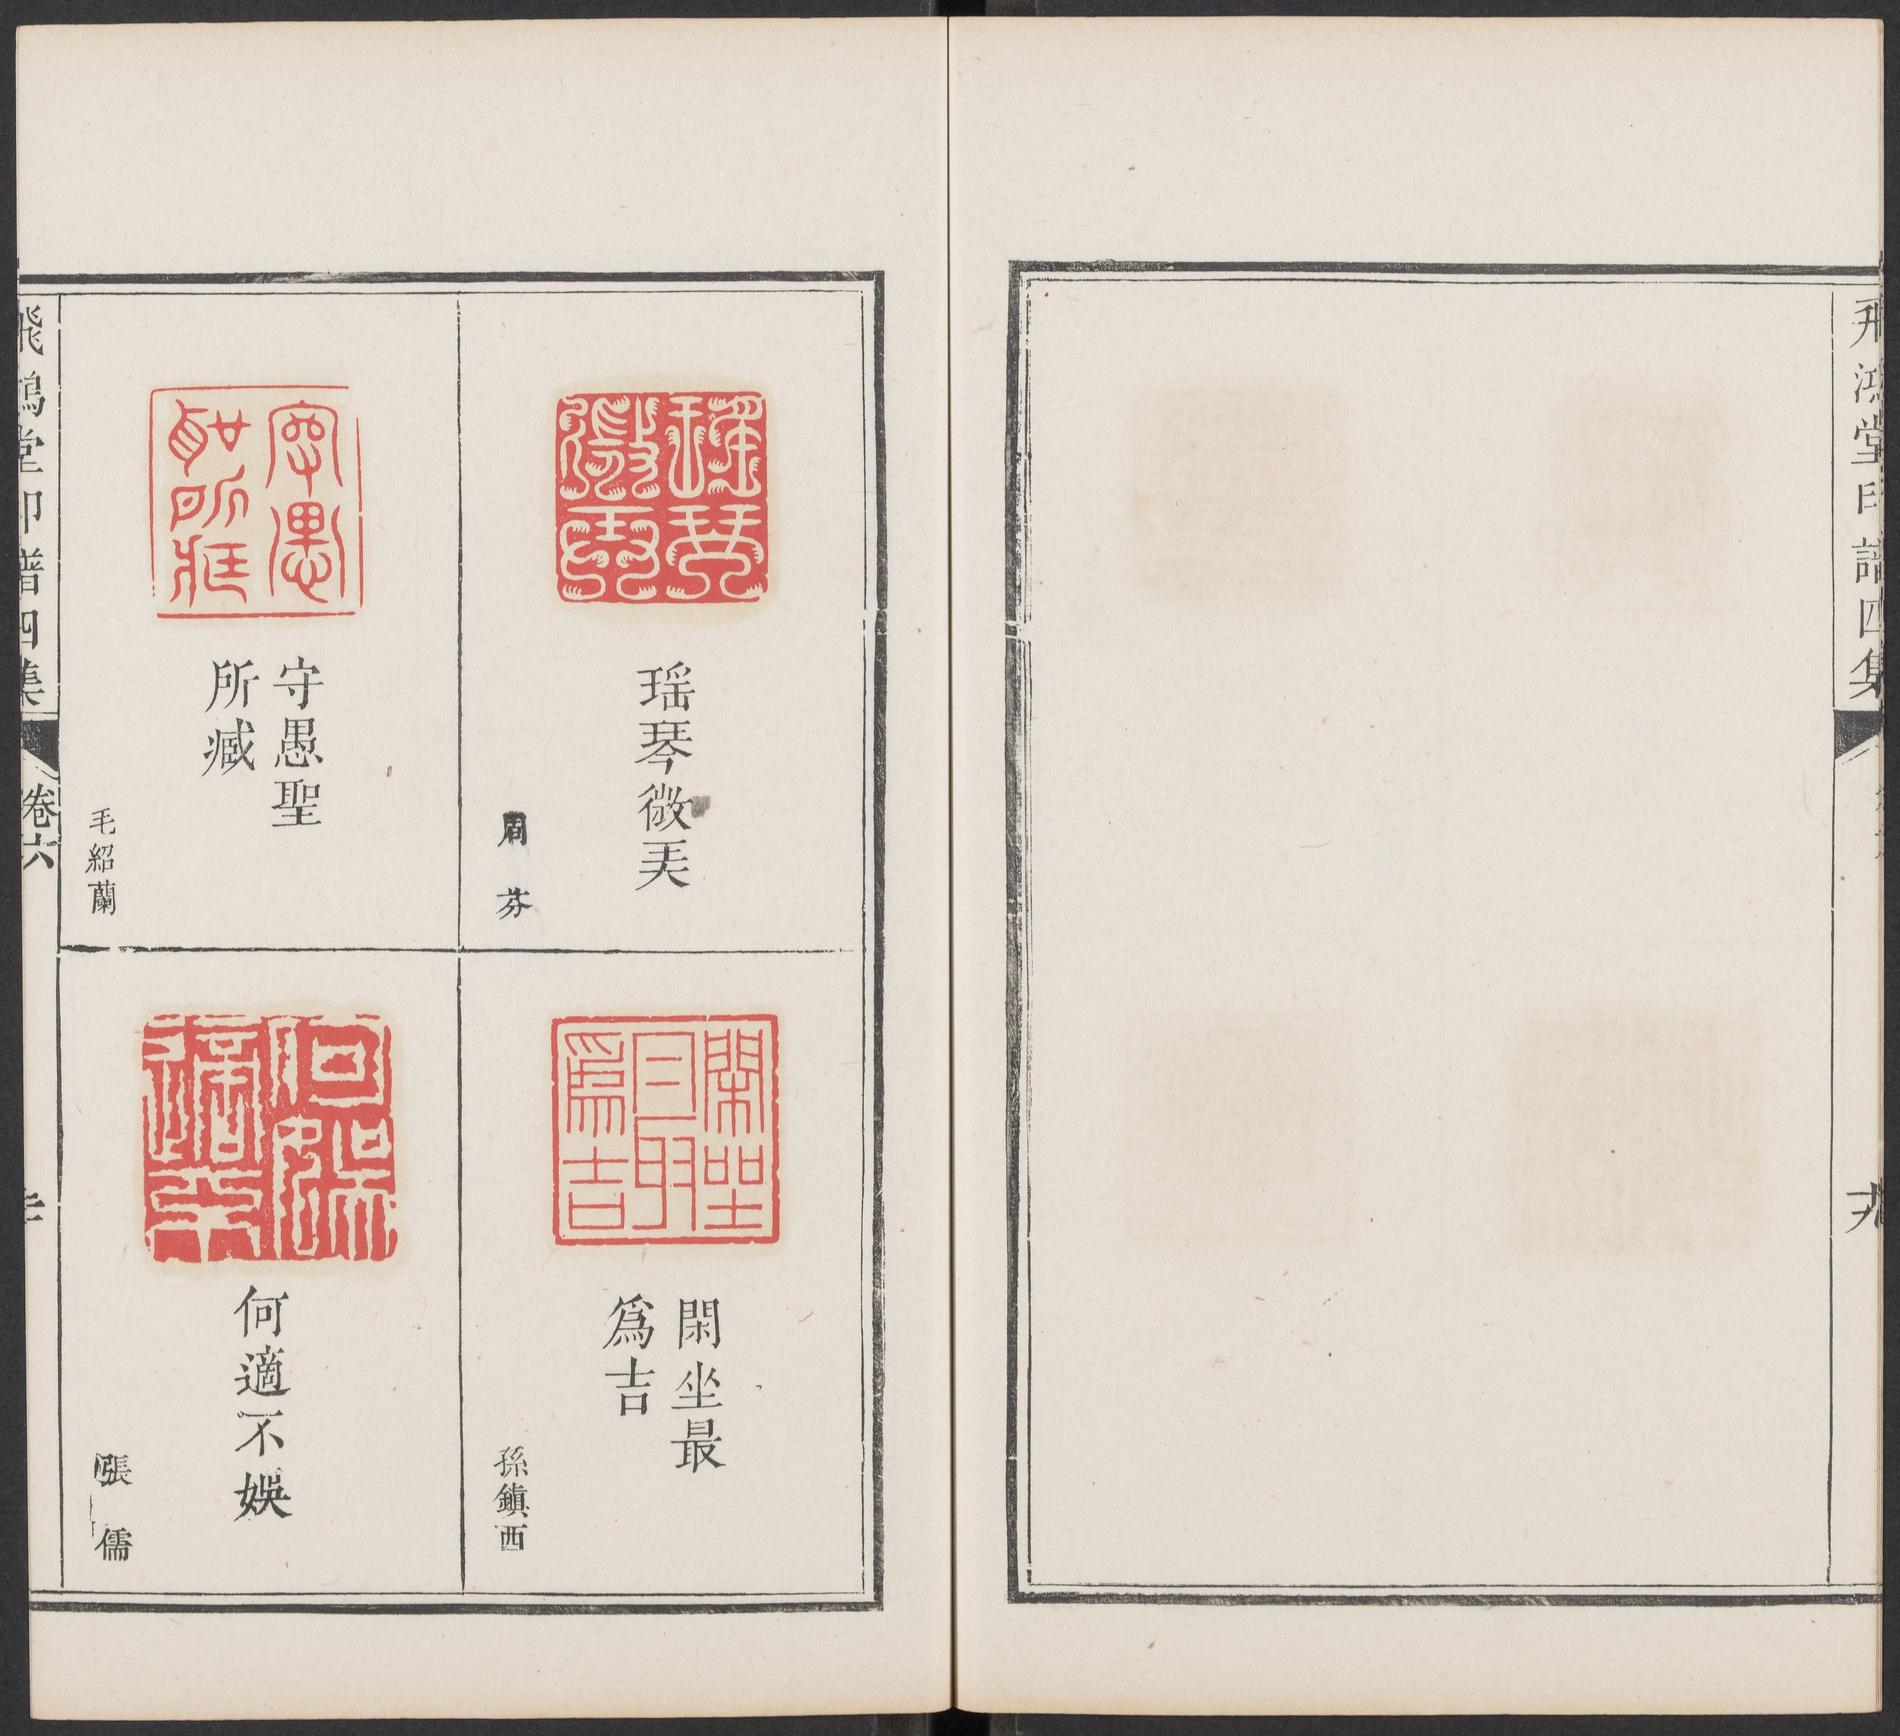 飛鴻堂印譜四集
九
瑤琴微美
周芬
閑坐最
爲吉
孫鎮西
守愚聖
所臧
毛紹蘭
何適不娛
張儒
飛鴻堂印譜四集
卷六